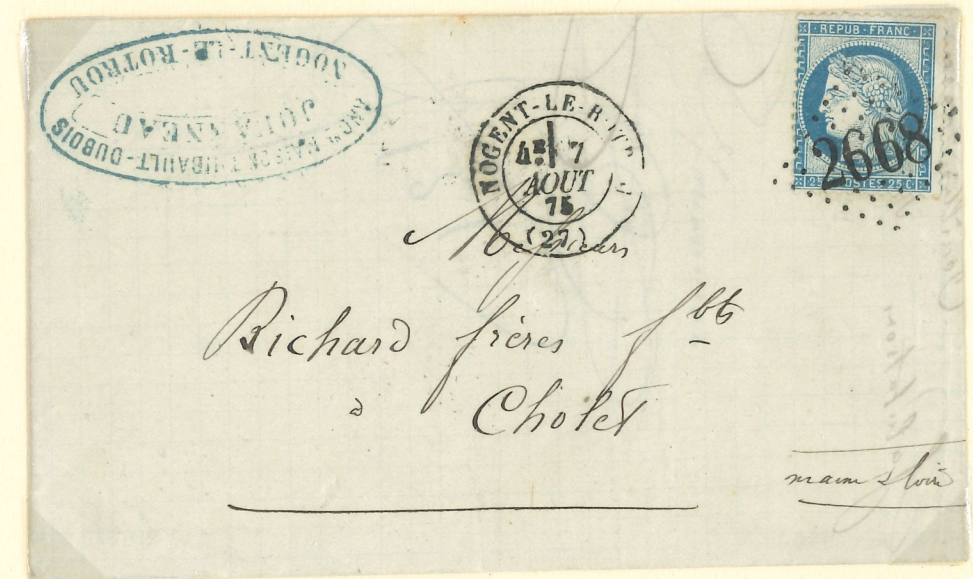 ANCNE MAISON THIBAULT-DUBOIS
JOUANNEAU
NOGENT-LE-ROTROU
NOGENT-LE-ROTROU
4E 7
AOUT
75
(27)
REPUB·FRANC·
25 POSTES 25 C
2668
Messieurs
Richard frères fbts
à
Cholet
maine & loire